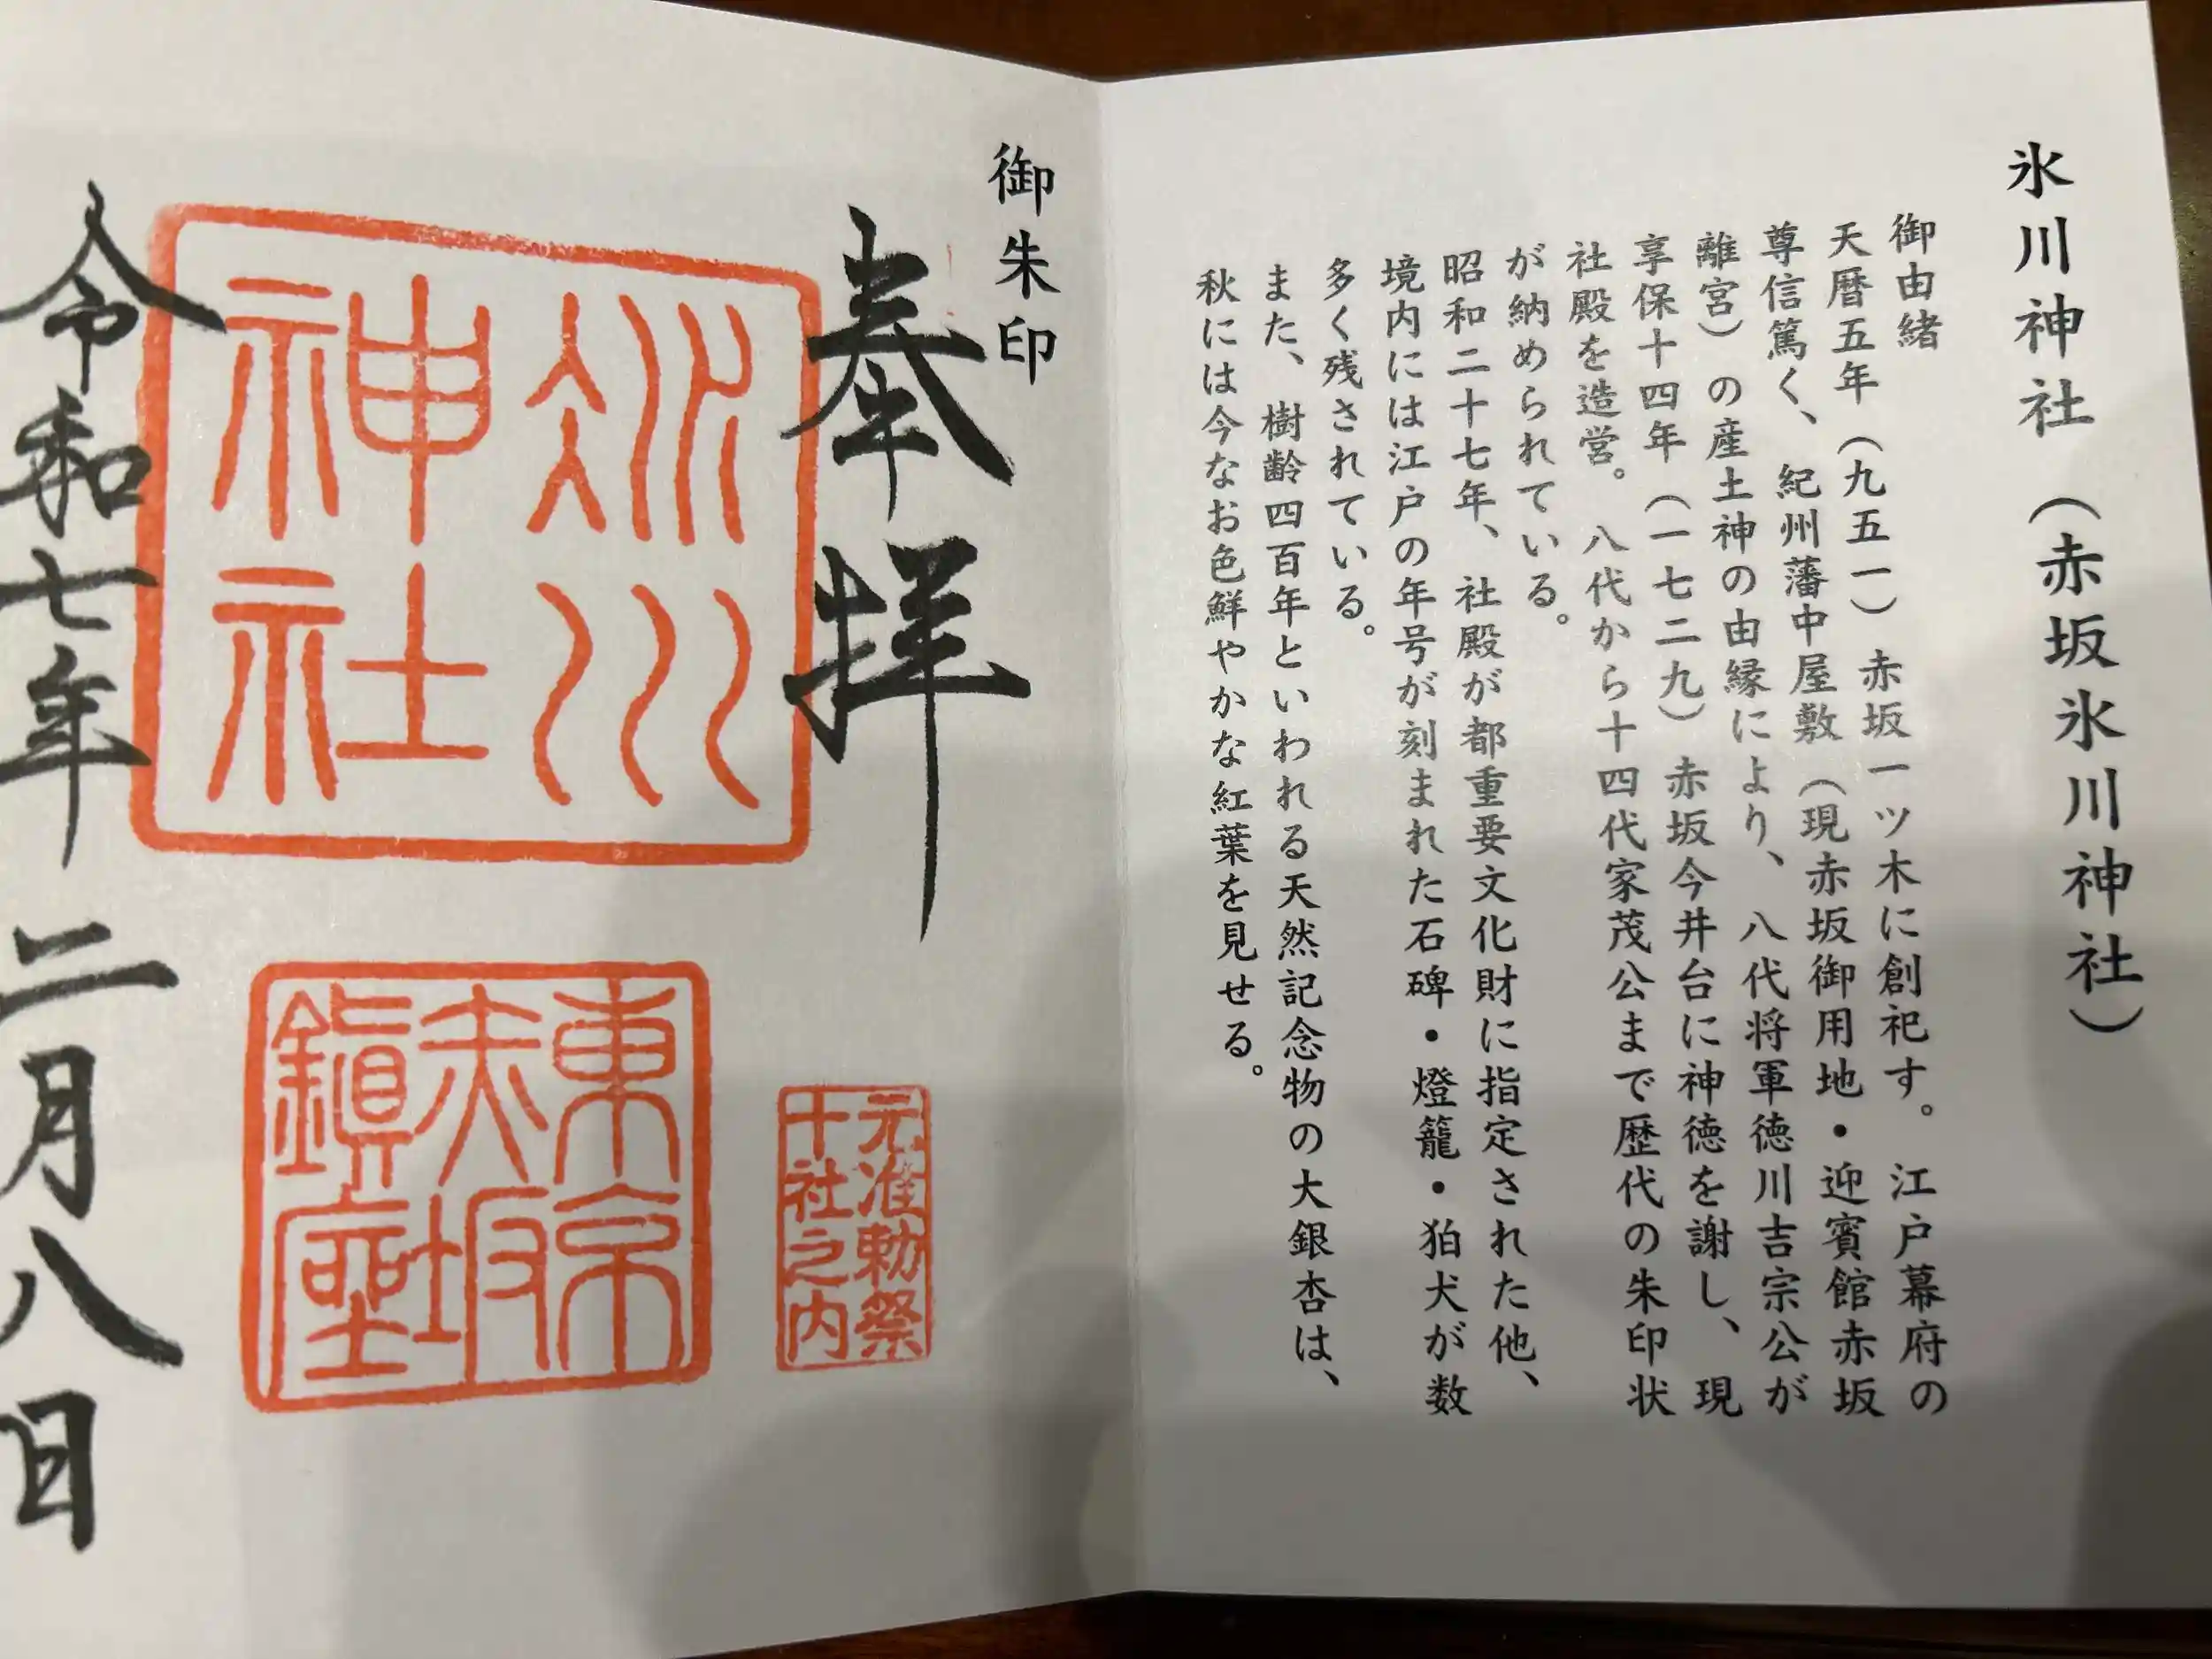 氷川神社（赤坂氷川神社）
御由緒
天暦五年（九五一）赤坂一ツ木に創祀す。江戸幕府の
尊信篤く、紀州藩中屋敷（現赤坂御用地・迎賓館赤坂
離宮）の産土神の由縁により、八代将軍徳川吉宗公が
享保十四年（一七二九）赤坂今井台に神徳を謝し、現
社殿を造営。八代から十四代家茂公まで歴代の朱印状
が納められている。
昭和二十七年、社殿が都重要文化財に指定された他、
境内には江戸の年号が刻まれた石碑・燈籠・狛犬が数
多く残されている。
また、樹齢四百年といわれる天然記念物の大銀杏は、
秋には今なお色鮮やかな紅葉を見せる。
御朱印
奉拝
氷川
神社
元准勅祭
十社之内
東京
赤坂
鎮座
令和七年二月八日